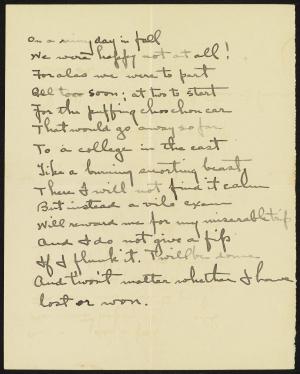 On a rainy day in fall
We were happy not at all!
For alas we were to part
All too soon; at two to start
For the puffing choo choo car
That would go away so far
To a college in the east
Like a burning snorting beast
There I will not find it calm
But instead a vile exam
Will reward me for my miserable trip
And I do not give a fip
If I flunk it. I will be done
And twon't matter whether I have
lost or won.